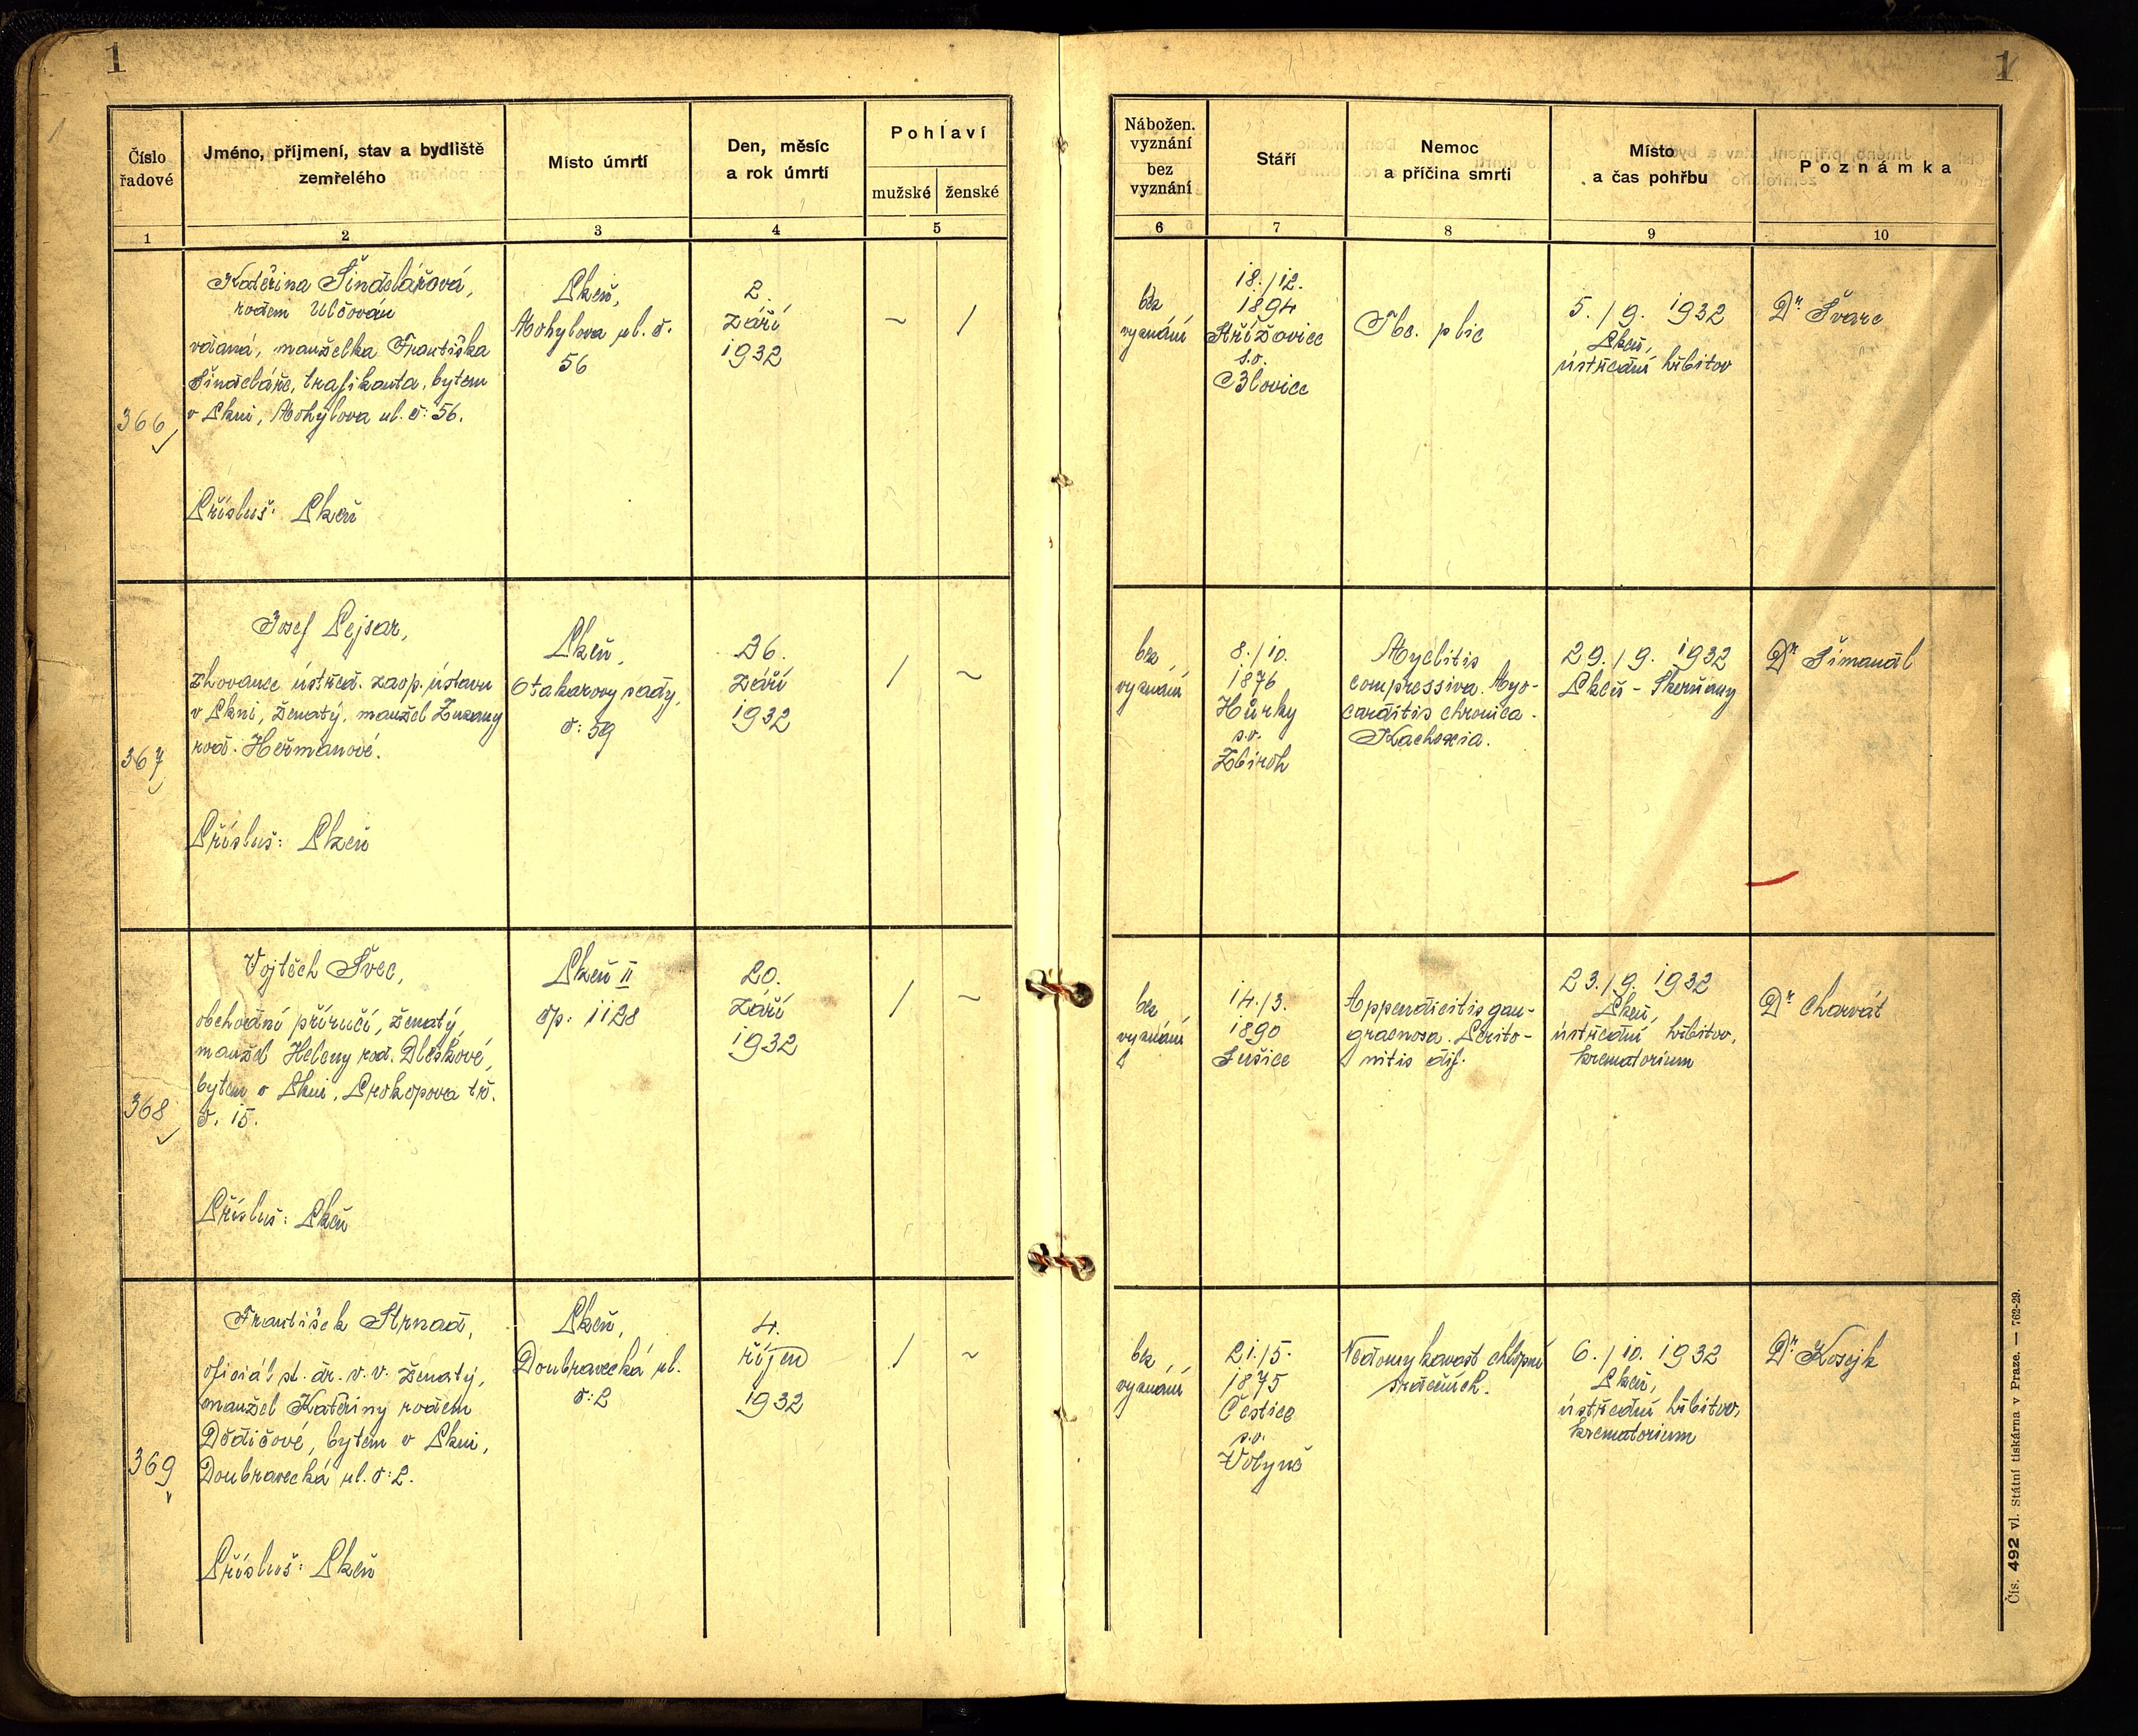 1
1
Číslo
řadové
Jméno, příjmení, stav a bydliště
zemřelého
Místo úmrtí
Den, měsíc
a rok úmrtí
Pohlaví
mužské
ženské
1
2
3
4
5
Nábožen.
vyznání
bez
vyznání
Stáří
Nemoc
a příčina smrti
Místo
a čas pohřbu
Poznámka
6
7
8
9
10
366
Kateřina Šindelářová,
rodem Ulčován
vdaná, manželka Františka
Šindeláře, trafikanta, bytem
v Plzni, Mohylova ul. č: 56.
Přísluš: Plzeň
Plzeň,
Mohylova ul. č.
56
2.
září
1932
~
/
bez
vyznání
18./12.
1894
Střížovice
s.o.
Blovice
Tbc. plic
5./9. 1932
Plzeň,
ústřední hřbitov
Dr Švarc
367
Josef Pejsar,
chovanec ústřed. zaop. ústavu
v Plzni, ženatý, manžel Zuzany
rod. Heřmanové.
Přísluš: Plzeň
Plzeň,
Otakarovy sady,
č: 59
26.
září
1932
/
~
bez
vyznání
8./10.
1876
Hůrky
s.o.
Zbiroh
Myelitis
compressiva. Myo-
carditis chronica.
Kachexia.
29./9. 1932
Plzeň - Skvrňany
Dr Šimandl
368
Vojtěch Švec,
obchodní příručí, ženatý,
manžel Heleny rod. Dleskové,
bytem v Plzni, Prokopova tř.
č. 15.
Přísluš: Plzeň
Plzeň II
čp: 1128
20.
září
1932
/
~
bez
vyznání
14./3.
1890
Sušice
Appendicitis gan-
graenosa. Perito-
nitis dif.
23./9. 1932
Plzeň,
ústřední hřbitov,
krematorium
Dr Charvát
369
František Strnad,
oficiál st. dr. v. v. ženatý,
manžel Kateřiny rodem
Dědičové, bytem v Plzni,
Doubravecká ul. č: 2.
Přísluš: Plzeň
Plzeň,
Doubravecká ul.
č: 2
4.
říjen
1932
/
~
bez
vyznání
21./5.
1875
Čestice
s.o.
Volyně
Nedomykavost chlopní
srdečních.
6./10. 1932
Plzeň,
ústřední hřbitov,
krematorium
Dr Kosejk
Čís. 492 vl. Státní tiskárna v Praze. — 762-29.